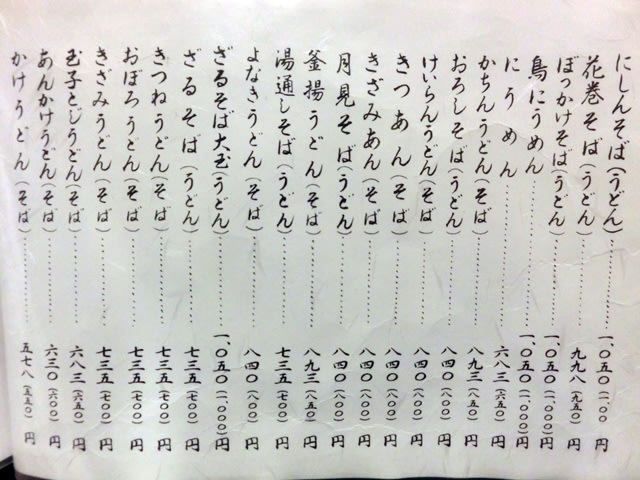 にしんそば(うどん)…………一、〇五〇(一、〇〇 円
花巻そば(うどん)…………九九八(九五〇)円
ぼっかけそば(うどん)…………一、〇五〇(一、〇〇〇)円
鳥にうめん…………一、〇五〇(一、〇〇〇)円
にうめん…………六八三(六五〇)円
かちんうどん(そば)…………八九三(八五〇)円
おろしそば(うどん)…………八四〇(八〇〇)円
けいらんうどん(そば)…………八四〇(八〇〇)円
きつあん(そば)…………八四〇(八〇〇)円
きざみあん(そば)…………八四〇(八〇〇)円
月見そば(うどん)…………八四〇(八〇〇)円
釜揚うどん(そば)…………八九三(八五〇)円
湯通しそば(うどん)…………七三五(七〇〇)円
よなきうどん(そば)…………八四〇(八〇〇)円
ざるそば大玉(うどん)…………一、〇五〇(一、〇〇〇)円
ざるそば(うどん)…………七三五(七〇〇)円
きつねうどん(そば)…………七三五(七〇〇)円
おぼろうどん(そば)…………七三五(七〇〇)円
きざみうどん(そば)…………七三五(七〇〇)円
玉子とじうどん(そば)…………六八三(六五〇)円
あんかけうどん(そば)…………六三〇(六〇〇)円
かけうどん(そば)…………五七八(五五〇)円